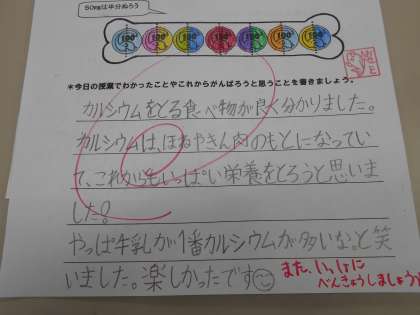 50mgは半分ぬろう
100 100 100 100 100 100 100
*今日の授業でわかったことやこれからがんばろうと思うことを書きましょう。
カルシウムをとる食べ物が良く分かりました。
カルシウムは、ほねやきん肉のもとになってい
て、これからもいっぱい栄養をとろうと思いま
した?
やっぱ牛乳が1番カルシウムが多いな。と笑
いました。楽しかったです
また、いっしょに
べんきょうしましょう